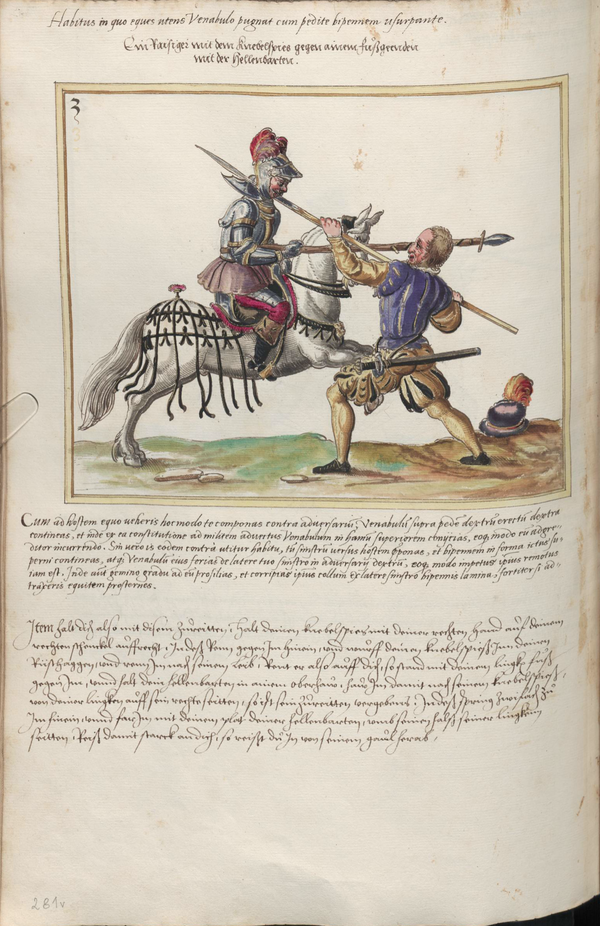 Habitus in quo eques utens Venabulo pugnat cum pedite bipennem usurpante.
Ein Raisiger mit dem Knebelspies gegen ainem fuoßgenden
mit der Hellenbarten.
3
Cum ad hostem equo veheris hoc modo te componas contra adversariũ, Venabulũ supra pedẽ dextrũ erectũ dextra
contineas, et inde ex ea constitutione ad militem advectus Venabulum in hamũ superiorem conijcias, eoq. modo eũ adgre-
ditor incurrendo. Sin vero is eodem contra utitur habitu, tũ sinistrũ versus hostem oponas, et bipennem in forma ictus su-
perni contineas, atq. Venabulũ eius ferias de latere tuo sinistro in adversarij dextrũ, eoq. modo impetus ipsius remotus
iam est. Inde uno gemino gradu ad eũ prosilias, et corripias ipsius collum ex latere sinistro bipennis lamina, fortiter si ad-
traxeris equitem prosternes.
Item halt dich also mit disem zureitten, halt deinen knebelspies mit deiner rechten hand auf deinem
rechten schenkel auffrecht, Indeß Renn gegen Im hinein, und wurff deinen knebelspieß Inn deinen
Rüsthaggen, und renn Im nach seinem leib, Rent er also auff dich, so stand mit deinem lingken fuß
gegen Im, und halt dein hellenbarten in ainem oberhaw, haw Im damit nach seinem knebelspieß,
von deiner lingken auff sein rechte seitten, so ist sein zureitten vergebens, Indeß spring zwifach zu
Im hinein, und far Im mit deinem plat deiner hellenbarten, umb seinen halß seiner lingken
seitten, Reiß damit starck an dich, so reißt du In von seinem gaul herab.
281v